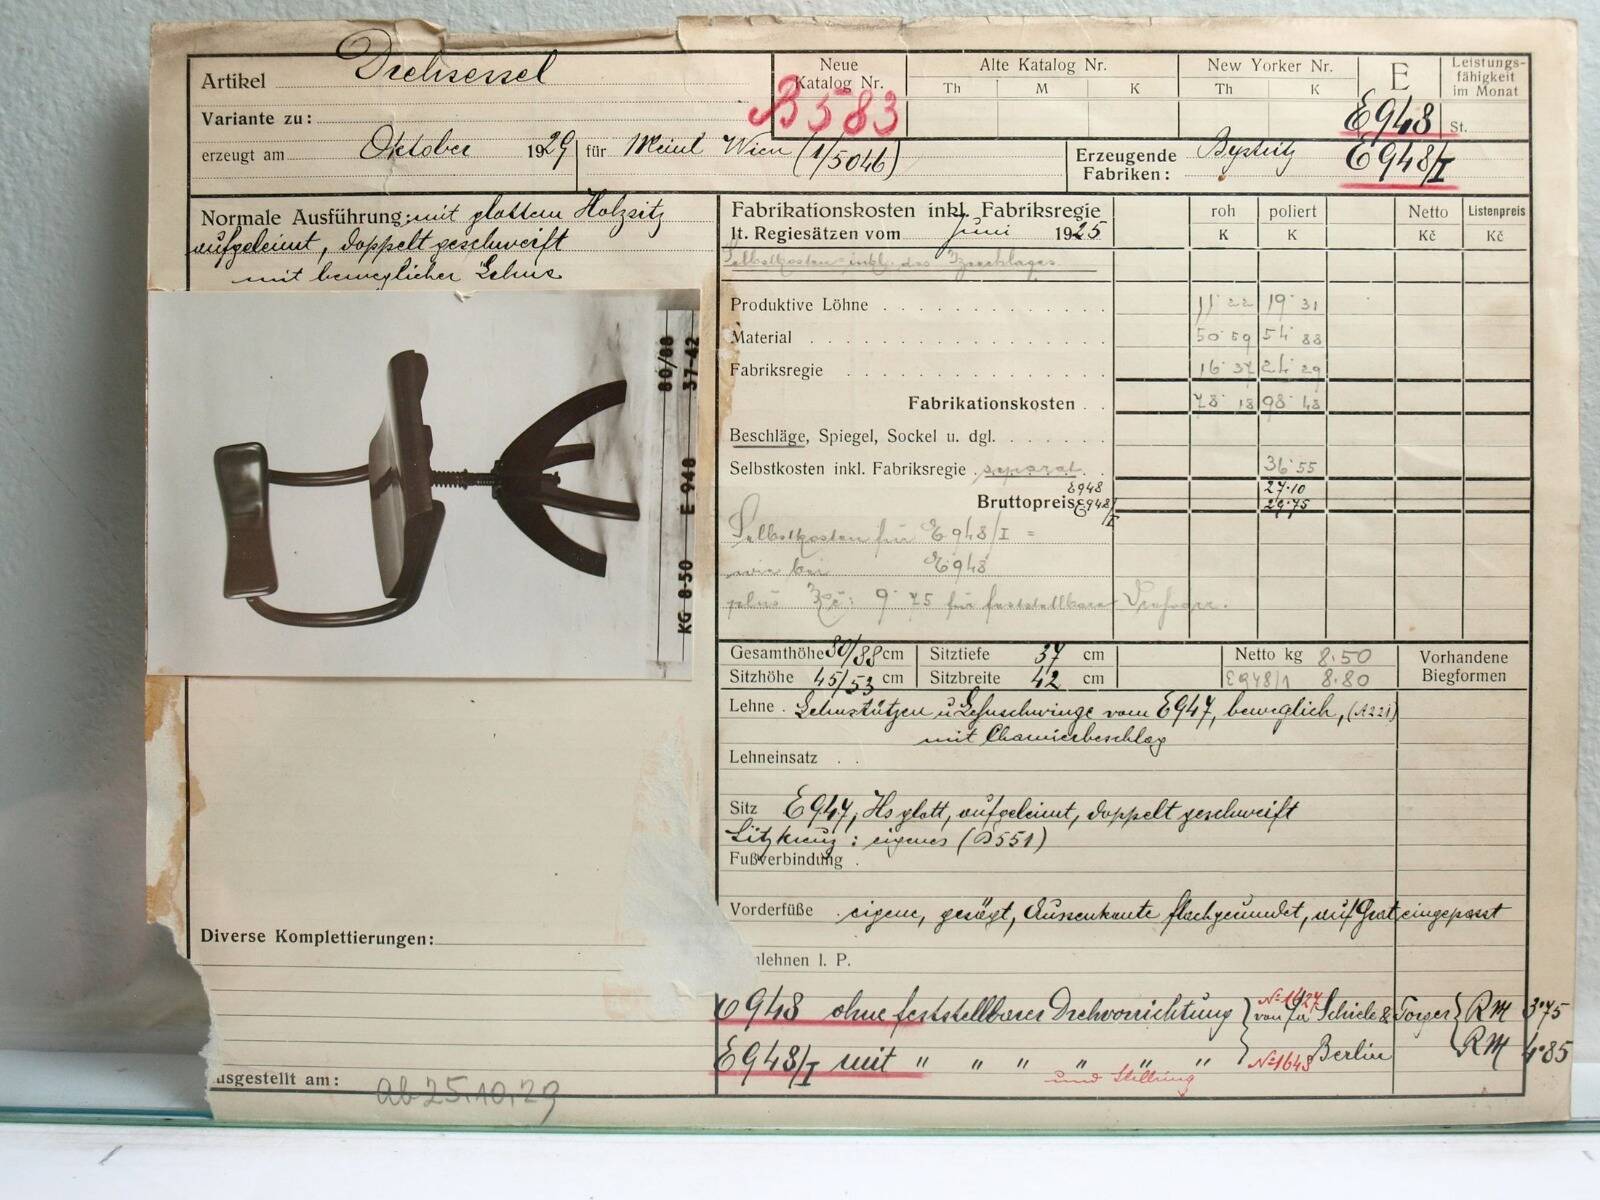 Artikel Drehsessel
Neue Katalog Nr. B 583
Alte Katalog Nr.
Th M K
New Yorker Nr.
Th K
E
E948
Leistungs-
fähigkeit
im Monat
St.
Variante zu:
erzeugt am Oktober 1929 für Meinl Wien (1/5046)
Erzeugende
Fabriken: Bystritz E948/I
Normale Ausführung: mit glattem Holzsitz
aufgeleimt, doppelt geschweift
mit beweglicher Lehne
80/88
37-42
E 948
KG 8·50
Diverse Komplettierungen:
usgestellt am: ab 25.10.29
Fabrikationskosten inkl. Fabriksregie
lt. Regiesätzen vom Juni 1925
roh poliert Netto Listenpreis
K K Kč Kč
Selbstkosten inkl. des Beschlages
Produktive Löhne 11·22 19·31
Material 50·59 54·88
Fabriksregie 16·37 24·29
Fabrikationskosten 78·18 98·48
Beschläge, Spiegel, Sockel u. dgl.
Selbstkosten inkl. Fabriksregie separat 36·55
Bruttopreis E948 27·10
E948/I 29·75
Selbstkosten für E948/I =
wie bei E948
plus Kč: 9·75 für feststellbare
Gesamthöhe 80/88 cm Sitztiefe 37 cm Netto kg 8.50
Sitzhöhe 45/53 cm Sitzbreite 42 cm E948/1 8.80
Vorhandene
Biegformen
Lehne Lehnstützen u Lehnschwinge vom E947, beweglich, (A221)
mit Charnierbeschlag
Lehneinsatz
Sitz E947, Hs glatt, aufgeleimt, doppelt geschweift
Sitzkreuz: eigenes (D551)
Fußverbindung
Vorderfüße eigene, gesägt, Aussenkante flachgerundet, auf Grat eingepasst
mlehnen l. P.
E948 ohne feststellbarer Drehvorrichtung } No 1627 von Fa Schiele & Torger { RM 3·75
E948/I mit " " " " " " } No 1648 Berlin RM 4·85
und Stellring